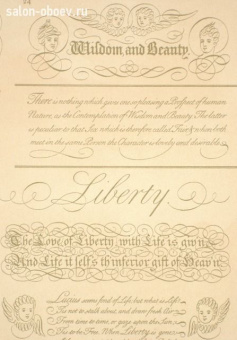 www.salon-oboev.ru
Wisdom and Beauty
There is nothing which gives one so pleasing a Prospect of human
Nature, as the Contemplation of Wisdom and Beauty: The latter
is peculiar to that Sex which is therefore called Fair; & when both
meet in the same Person the Character is lovely and desirable.
Liberty
The Love of Liberty with Life is giv'n,
And Life it self's th'inferior gift of Heav'n.
Lucius seems fond of Life; but what is Life?
'Tis not to stalk about, and draw fresh Air
From time to time, or gaze upon the Sun;
'Tis to be Free. When Liberty is gone